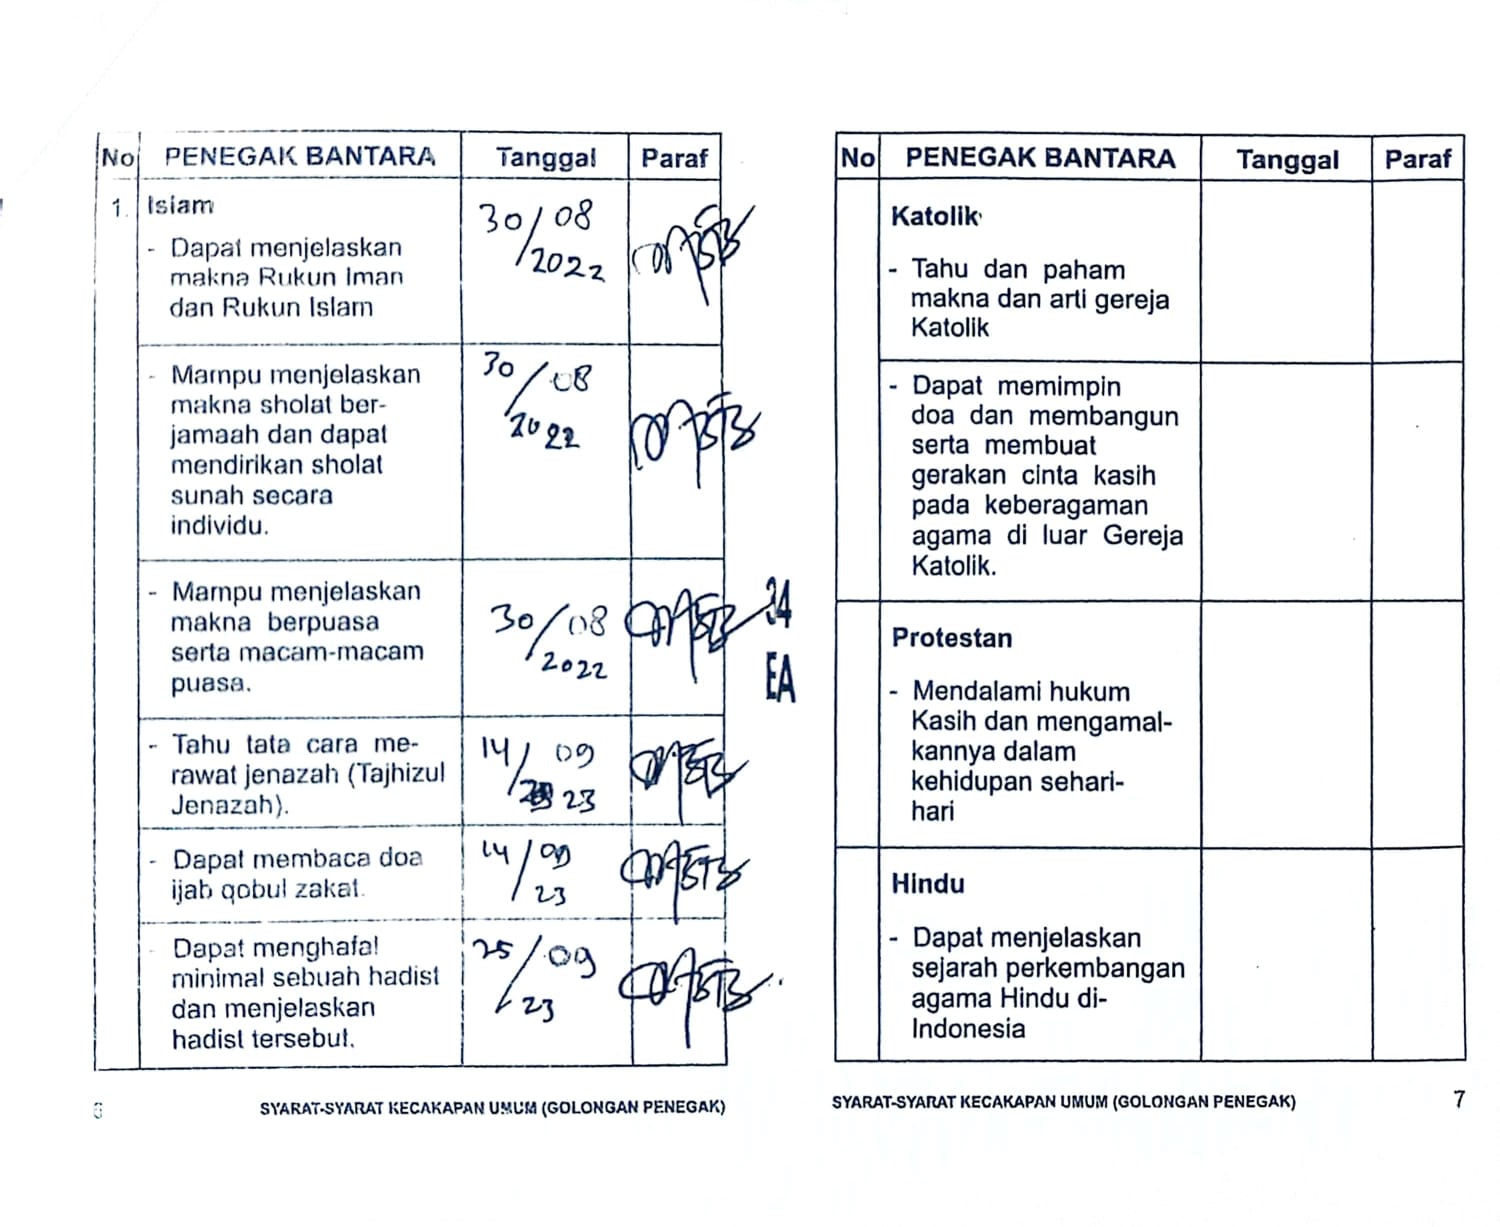 No PENEGAK BANTARA Tanggal Paraf
1. Islam
- Dapat menjelaskan
makna Rukun Iman
dan Rukun Islam
30/08
/2022
- Mampu menjelaskan
makna sholat ber-
jamaah dan dapat
mendirikan sholat
sunah secara
individu.
30/08
2022
- Mampu menjelaskan
makna berpuasa
serta macam-macam
puasa.
30/08
/2022
34
EA
- Tahu tata cara me-
rawat jenazah (Tajhizul
Jenazah).
14/09
/23
- Dapat membaca doa
ijab qobul zakat.
14/09
/23
- Dapat menghafal
minimal sebuah hadist
dan menjelaskan
hadist tersebut.
25/09
/23
6 SYARAT-SYARAT KECAKAPAN UMUM (GOLONGAN PENEGAK)
No PENEGAK BANTARA Tanggal Paraf
Katolik
- Tahu dan paham
makna dan arti gereja
Katolik
- Dapat memimpin
doa dan membangun
serta membuat
gerakan cinta kasih
pada keberagaman
agama di luar Gereja
Katolik.
Protestan
- Mendalami hukum
Kasih dan mengamal-
kannya dalam
kehidupan sehari-
hari
Hindu
- Dapat menjelaskan
sejarah perkembangan
agama Hindu di-
Indonesia
SYARAT-SYARAT KECAKAPAN UMUM (GOLONGAN PENEGAK) 7